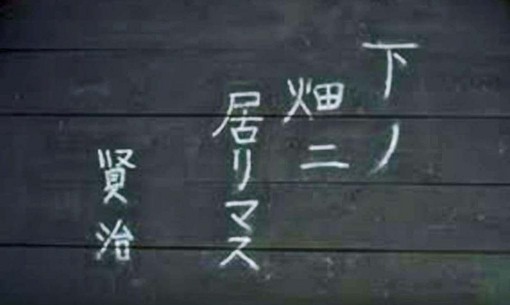 下ノ
畑ニ
居リマス
賢治